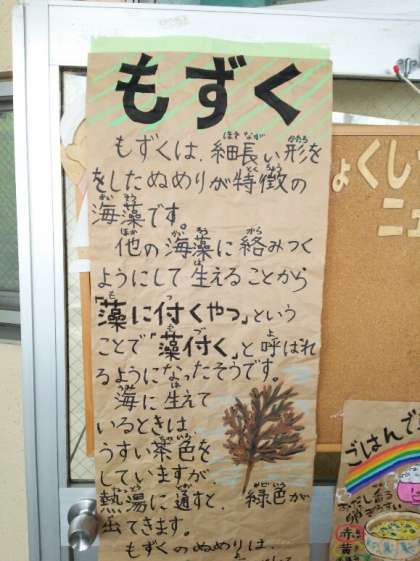 もずく
もずくは、細長い形を
をしたぬめりが特徴の
海藻です。
他の海藻に絡みつく
ようにして生えることから
「藻に付くやつ」という
ことで「藻付く」と呼ばれ
るようになったそうです。
海に生えて
いるときは、
うすい茶色を
していますが、
熱湯に通すと、緑色が
出てきます。
もずくのぬめりは、
ょくし
ニュ
ごはんで
赤
黄